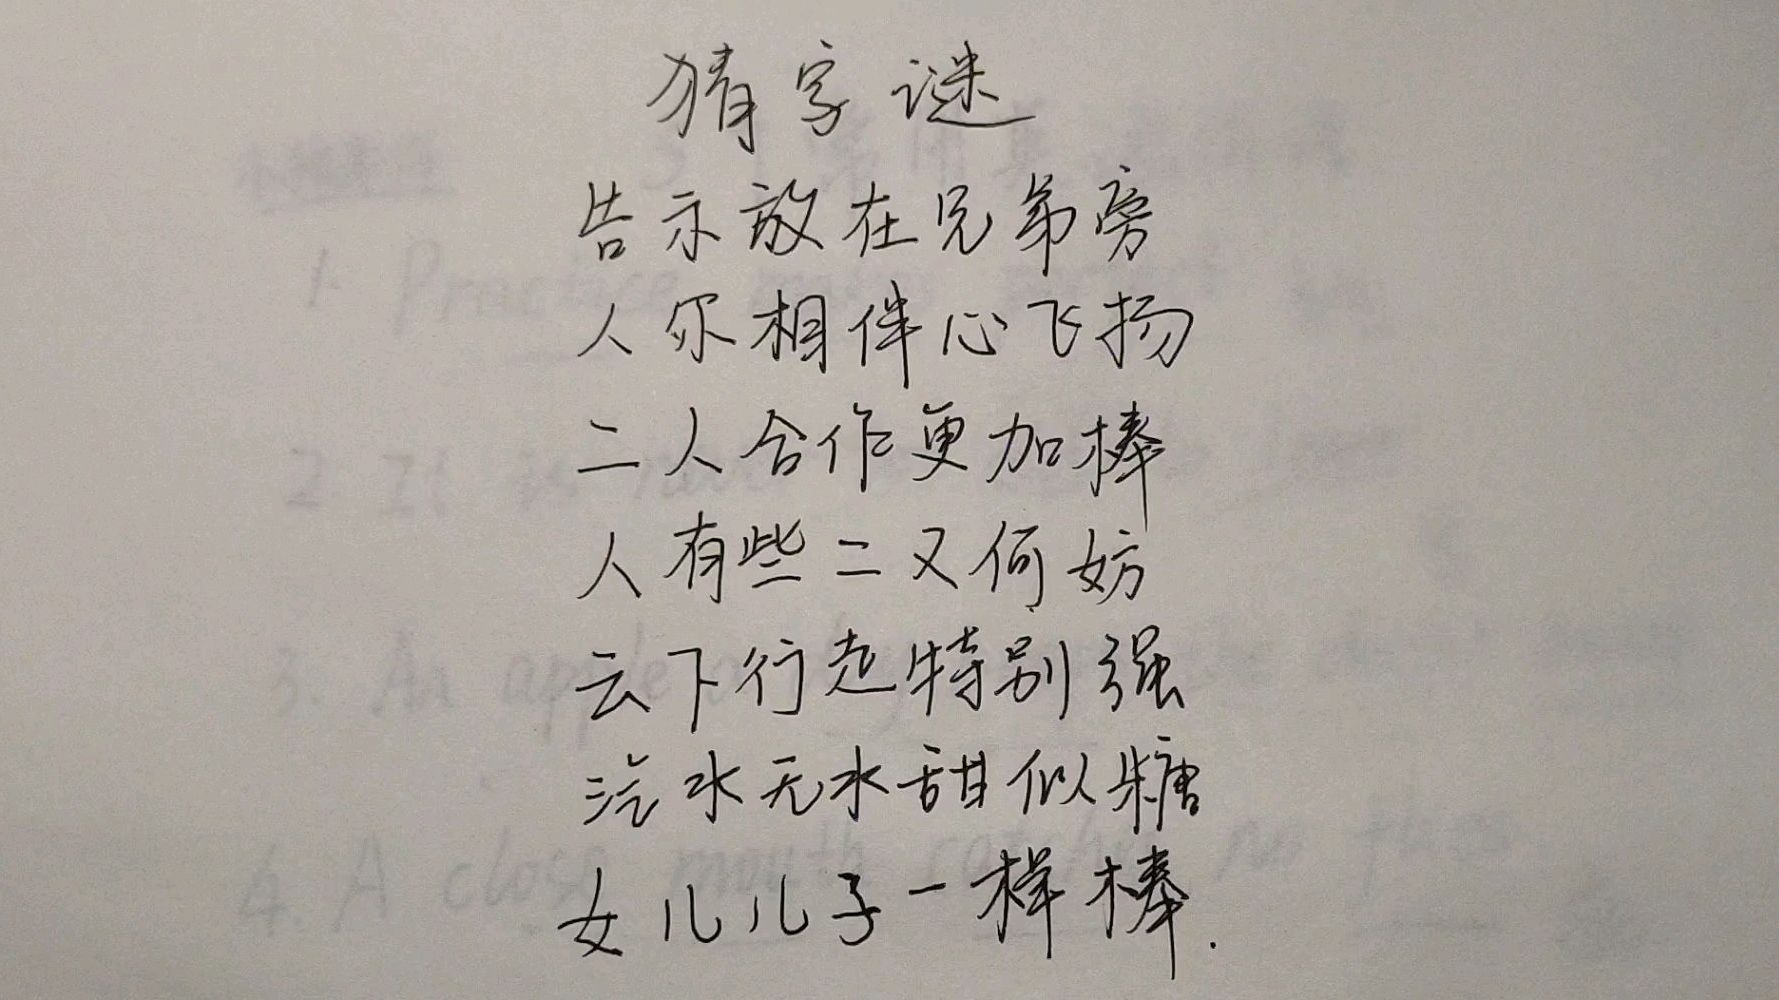 猜字谜
告示放在兄弟旁
人尔相伴心飞扬
二人合作更加棒
人有些二又何妨
云下行走特别强
汽水无水甜似糖
女儿儿子一样棒.
1. Practice
2. It is never
3. An apple
4. A close mouth catches no flies